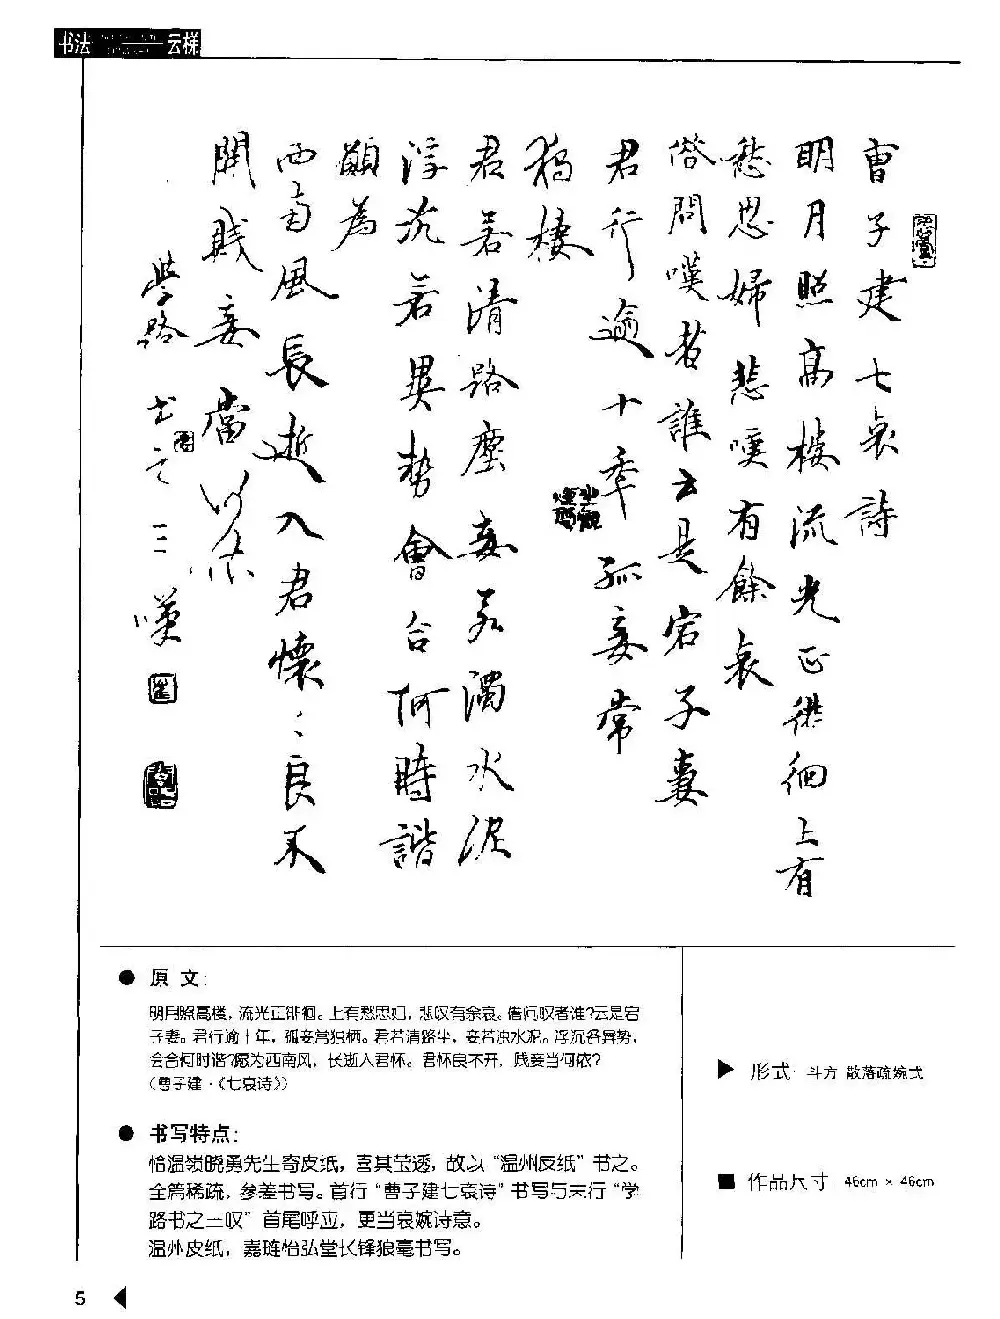 书法 云梯
曹子建七哀詩
明月照高楼流光正徘徊上有
愁思婦悲嘆有餘哀
借問嘆者誰云是宕子妻
君行逾十年孤妾常
獨棲
君若清路塵妾若濁水泥
浮沉各異勢會合何時諧
願為
西南風長逝入君懷〻良不
開賤妾當何依
學路书之三嘆
原文:
明月照高楼，流光正徘徊。上有愁思妇，悲叹有余哀。借问叹者谁?云是宕
子妻。君行逾十年，孤妾常独栖。君若清路尘，妾若浊水泥。浮沉各异势，
会合何时谐?愿为西南风，长逝入君怀。君怀良不开，贱妾当何依?
(曹子建·《七哀诗》)
书写特点:
恰温岭晓勇先生寄皮纸，喜其莹透，故以“温州皮纸”书之。
全篇稀疏，参差书写。首行“曹子建七哀诗”书写与末行“学
路书之三叹”首尾呼应，更当哀婉诗意。
温州皮纸，嘉琏怡弘堂长锋狼毫书写。
形式: 斗方 散落疏婉式
作品尺寸: 46cm × 46cm
5